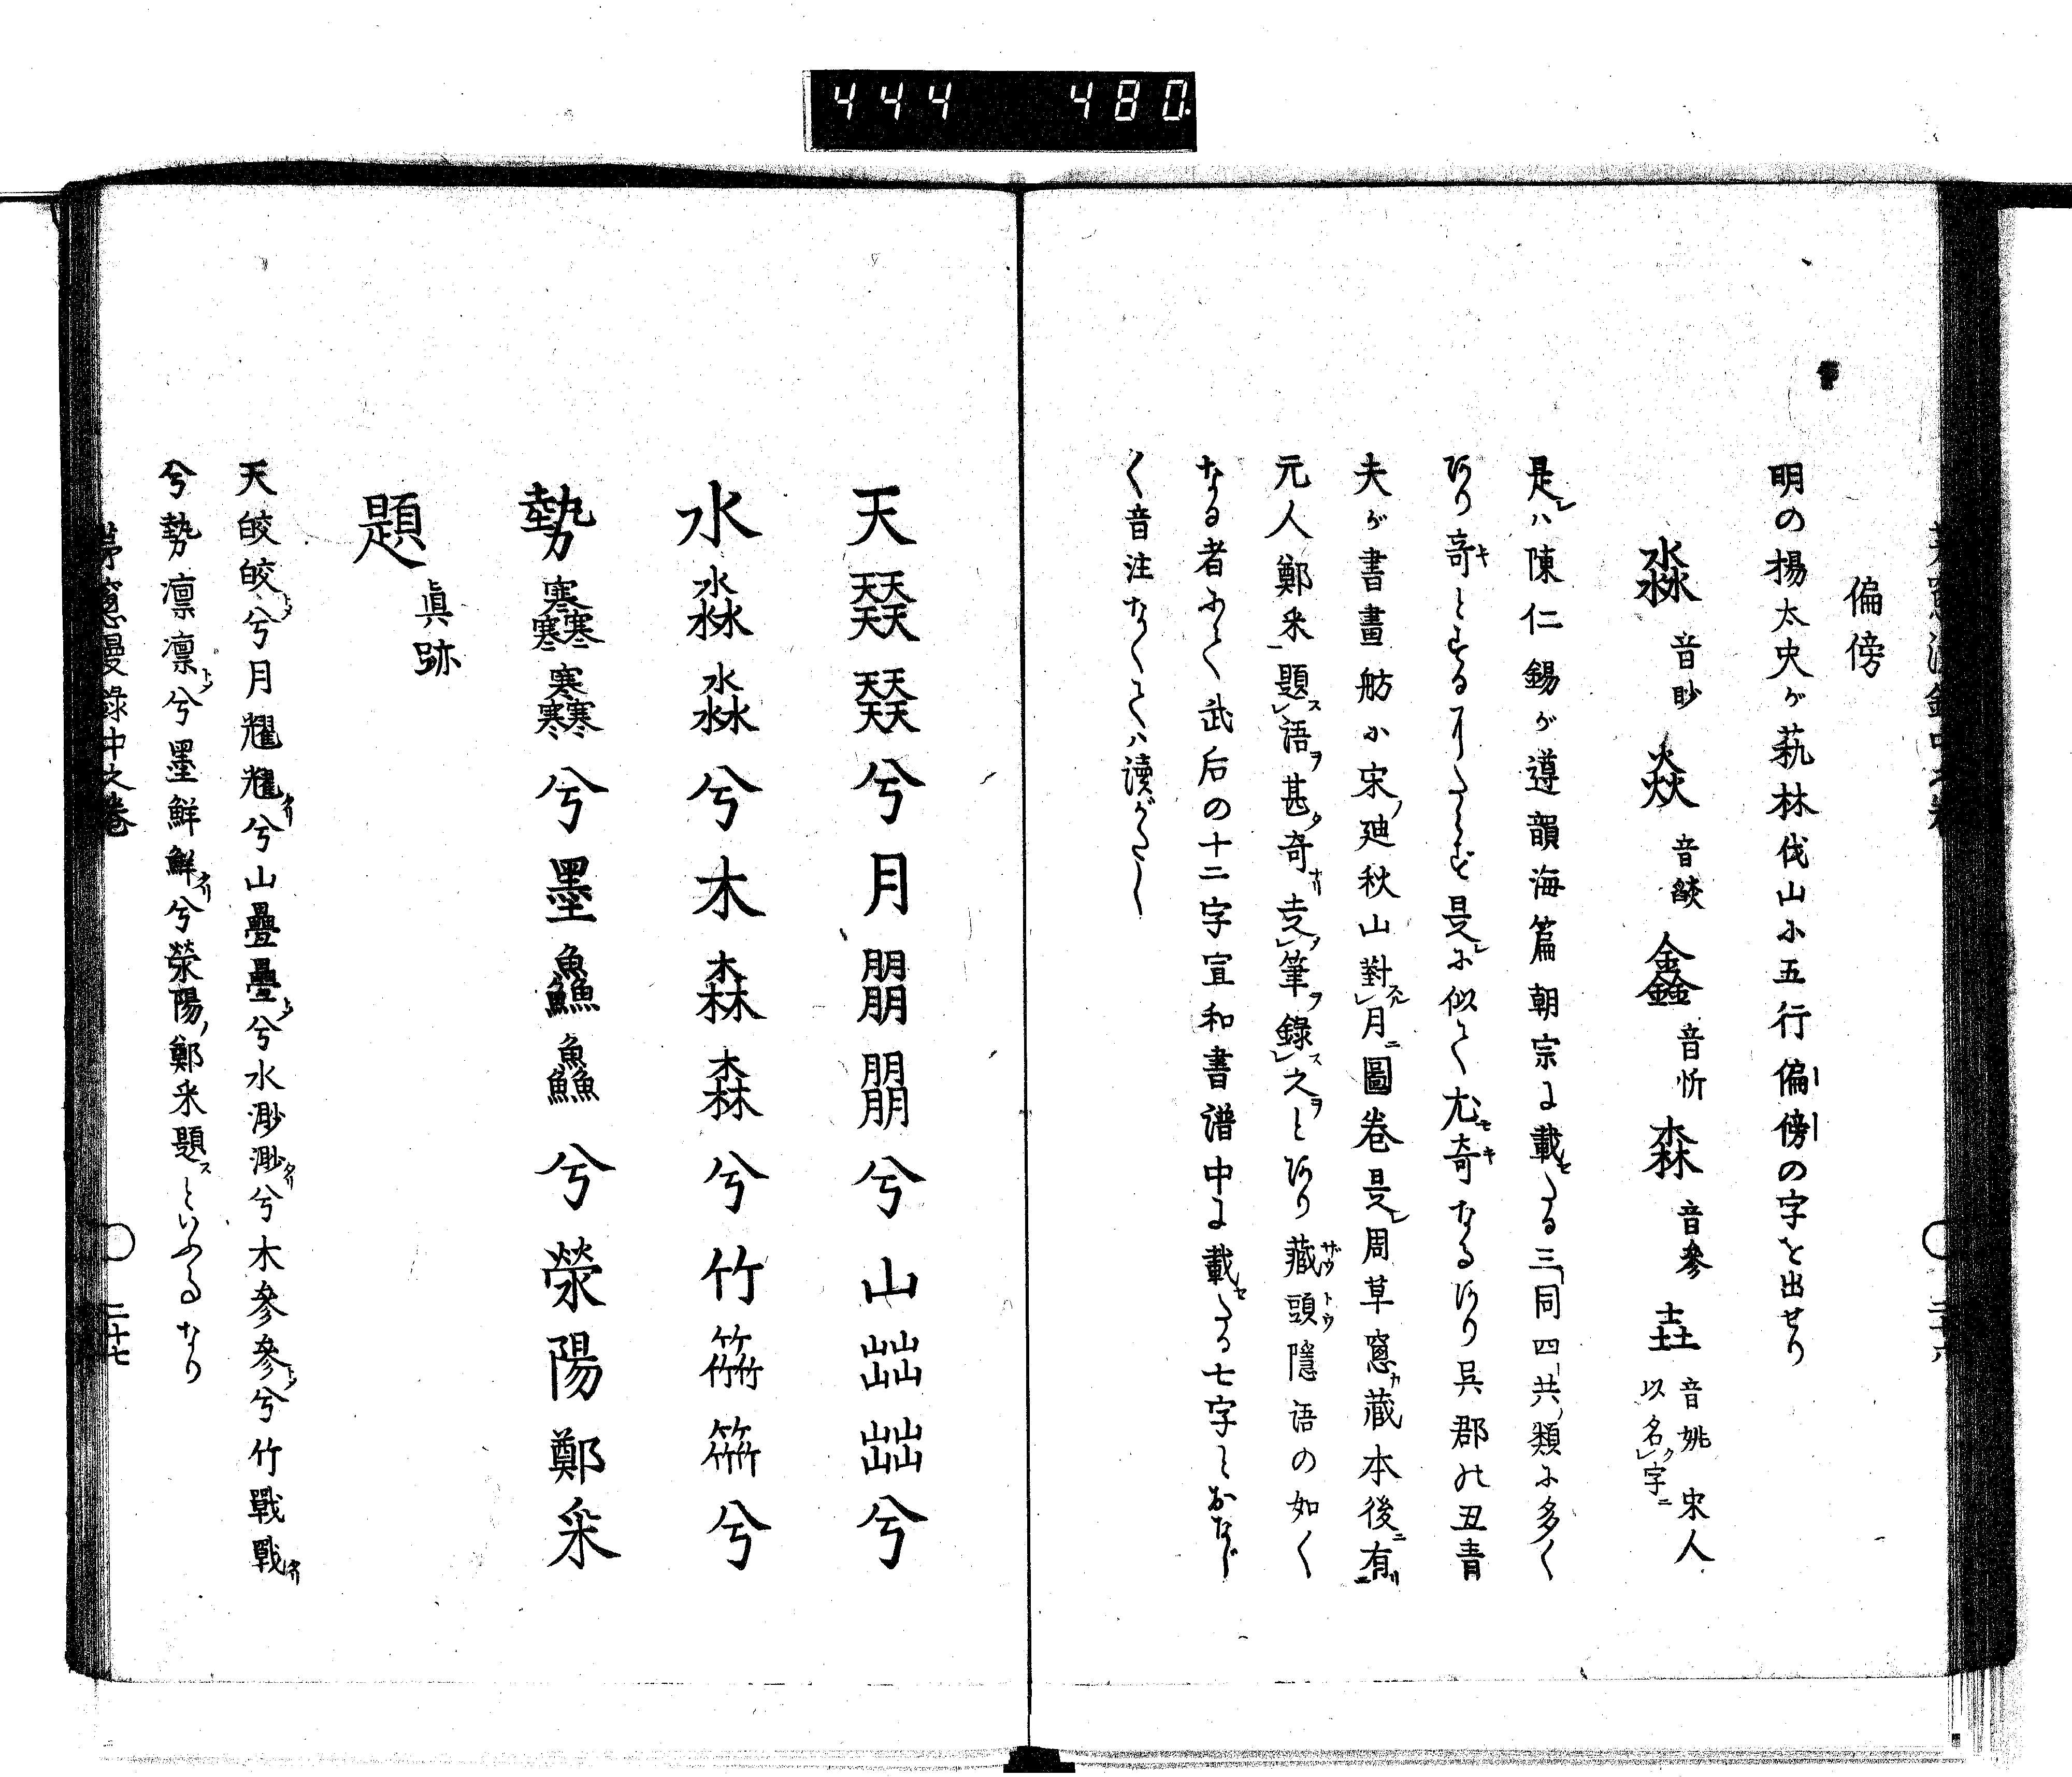 444 480
偏傍
明の楊太史が萟林伐山に五行偏傍の字を出せり
淼 音眇 焱 音燄 鑫 音忻 森 音參 垚 音姚 宋人以名字
是レハ陳仁錫が遵韻海篇朝宗に載たる三同四共ノ類に多く
あり奇とするにたらず是に似て尤奇なるあり呉郡の丑青
夫が書畫舫に宋ノ廸秋山對月圖卷是周草窓カ藏本後ニ有
元人鄭釆題語ヲ甚タ奇ナリ走筆ヲ錄ス之ヲとあり藏頭隱語の如く
なる者にて武后の十二字宣和書譜中に載たる七字とおなじ
く音注なくては讀がたし
天𠀘𠀘兮月朤朤兮山𡾰𡾰兮
水㵘㵘兮木𣡽𣡽兮竹𥸙𥸙兮
勢兮墨鱻鱻兮滎陽鄭釆
題 眞跡
天皎皎トシ兮月耀耀タリ兮山疊疊トシ兮水渺渺タリ兮木參參トシ兮竹戰戰タリ
兮勢凛凛トシ兮墨鮮鮮タリ兮滎陽ノ鄭釆題スといへるなり
茅窓漫錄中之卷 二十七